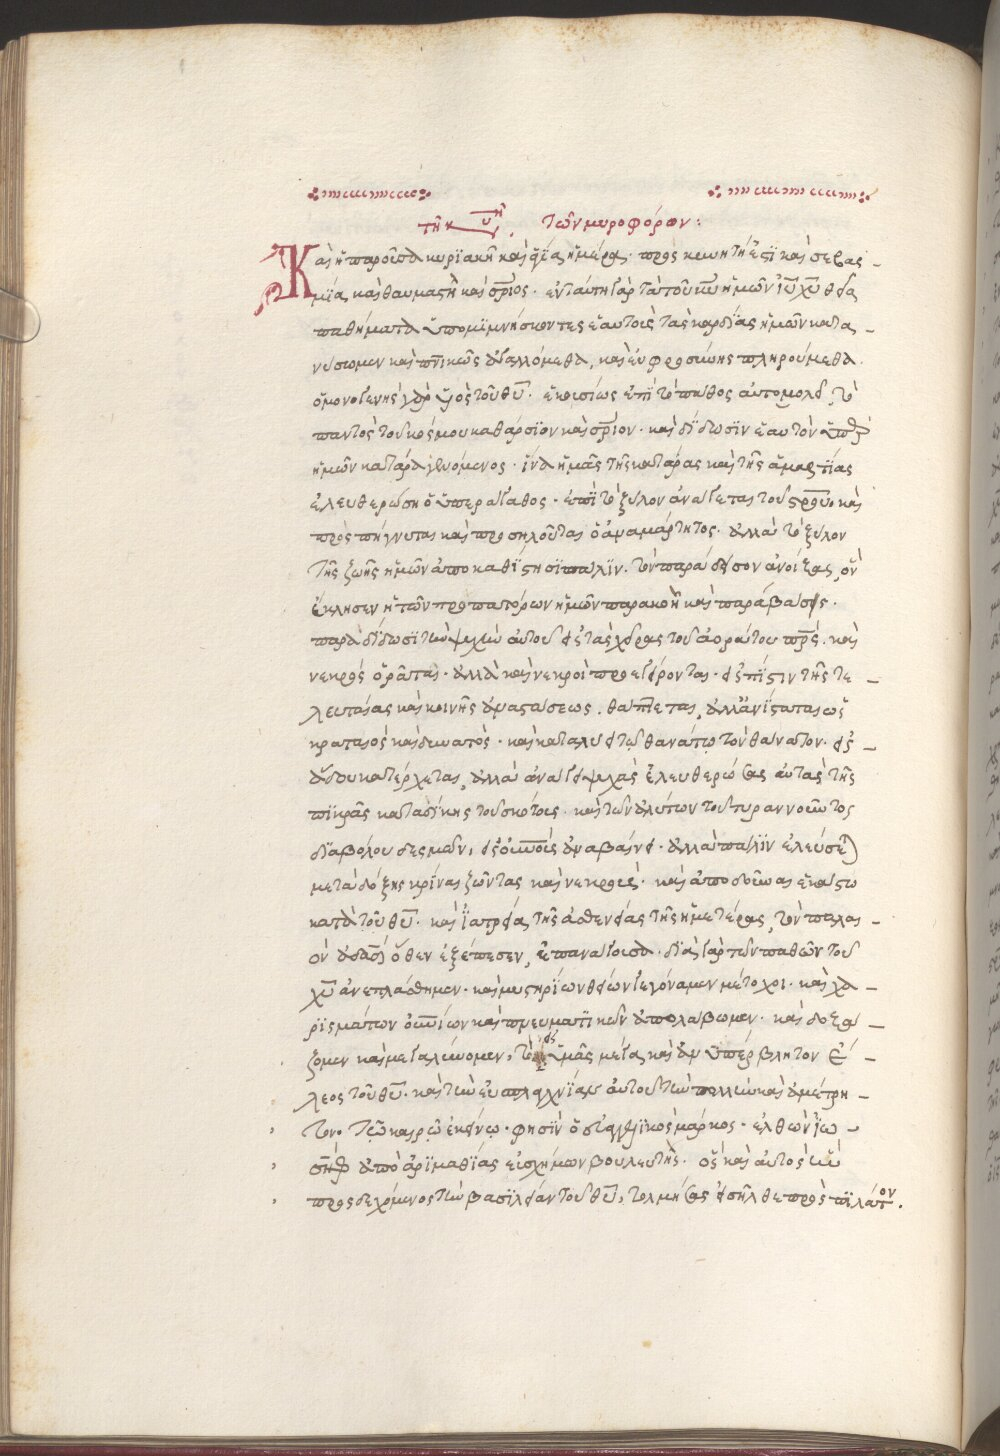 τῆ κυ^ῆ. τῶν μυροφόρων:
Καὶ ἡ παροῦσα κυριακὴ καὶ ἁγία ἡμέρα. πρὸς κοινή ἐστὶ καὶ σεβας-
μία καὶ θαυμαστὴ καὶ σ̅ρ̅ιος. ἐν ταύτη γὰρ τὰ τοῦ κ̅υ̅ ἡμῶν ἰ̅υ̅ χ̅υ̅ θεῖα
παθήματα ὑπομιμνήσκοντες ἑαυτοῖς τὰς καρδίας ἡμῶν κατα-
νύττομεν καὶ π̅ν̅ικῶς ἀγαλλόμεθα, καὶ εὐφροσύνης πληρούμεθα.
ὁ μονογενὴς γὰρ υἱὸς τοῦ θ̅υ̅. ἑκουσίως ἐπὶ τὸ πάθος αὐτομολεῖ, τὸ
παντὸς τοῦ κόσμου καθάρσιον καὶ σ̅ρ̅ιον. καὶ δίδωσιν ἑαυτὸν ὑπὲρ
ἡμῶν κατάρα γενόμενος. ἵνα ἡμᾶς τῆς κατάρας καὶ τῆς ἁμαρτίας
ἐλευθερώση ὁ ὑπεράγαθος. ἐπὶ τὸ ξύλον ἀνάγεται τοῦ σ̅ρ̅ου καὶ
προσπήγνυται καὶ προσηλοῦται ὁ ἀναμάρτητος. ἀλλὰ τὸ ξύλον
τῆς ζωῆς ἡμῶν ἀποκαθίστησι πάλιν. τὸν παράδεισον ἀνοίξας, ὃν
ἔκλησεν ἡ τῶν προπατόρων ἡμῶν παρακοὴ καὶ παράβασις.
παραδίδωσι τὴν ψυχὴν αὐτοῦ εἰς τὰς χεῖρας τοῦ ἀοράτου π̅ρ̅ς. καὶ
νεκρὸς ὁρᾶται. ἀλλὰ καὶ νεκροὶ προεγείρονται. εἰς πίστιν τῆς τε-
λευταίας καὶ κοινῆς ἀναστάσεως. θάπτεται, ἀλλ' ἀνίσταται ὡς
κραταιὸς καὶ δυνατός. καὶ καταλύει τῷ θανάτῳ τὸν θάνατον. εἰς-
ἅδου κατέρχεται, ἀλλὰ ἀνάγει ψυχὰς ἐλευθερώσας αὐτὰς τῆς
πικρᾶς καταδίκης τοῦ σκότους. καὶ τῶν ἀλύτων τοῦ τυραννοῦντος
διαβόλου δεσμῶν, εἰς ο̅υ̅νοὺς ἀναβαίνει. ἀλλὰ πάλιν ἐλεύσεται
μετὰ δόξης κρῖναι ζῶντας καὶ νεκρούς. καὶ ἀποδοῦναι ἑκάστω
κατὰ τοῦ θ̅υ̅. καὶ ἰατρεία τῆς ἀσθενείας τῆς ἡμετέρας, τὸν παλαι-
ὸν ἀδὰμ ὅθεν ἐξέπεσεν, ἐπανάγουσα. διὰ γὰρ τῶν παθῶν τοῦ
χ̅υ̅ ἀνεπλάσθημεν. καὶ μυστηρίων θείων γεγόναμεν μέτοχοι. καὶ χα-
ρισμάτων ο̅υ̅νίων καὶ πνευματικῶν ἀπολάβωμεν. καὶ δοξά-
ζομεν καὶ μεγαλύνομεν, τὸ εἰς ὑμᾶς μέγα καὶ ἀνυπέρβλητον ἔ-
λεος τοῦ θ̅υ̅. καὶ τὴν εὐσπλαχνίαν αὐτοῦ τὴν πολλὴν καὶ ἀμέτρη-
τον. Τῷ καιρῷ ἐκείνῳ. φησὶν ὁ εὐαγγελικὸς μάρκος. ἐλθὼν ἰω-
σὴφ ἀπὸ ἀριμαθίας εὐσχήμων βουλευτής. ὃς καὶ αὐτὸς ἦν
προσδεχόμενος τὴν βασιλείαν τοῦ θ̅υ̅, τολμήσας εἰσῆλθε πρὸς πιλάτον.